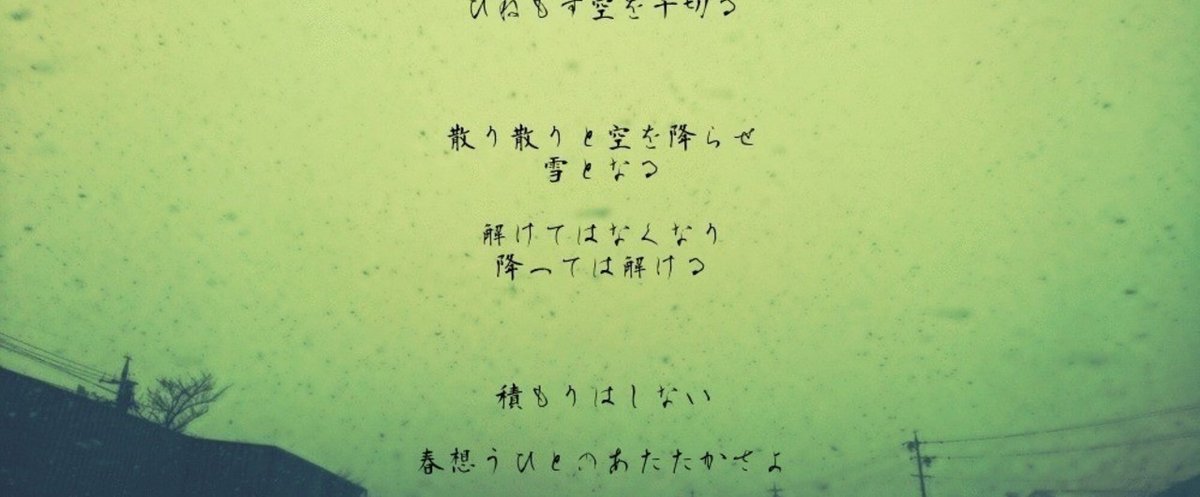 ひねもす空を千切る
散り散りと空を降らせ
雪となる
解けてはなくなり
降っては解ける
積もりはしない
春想うひとのあたたかさよ